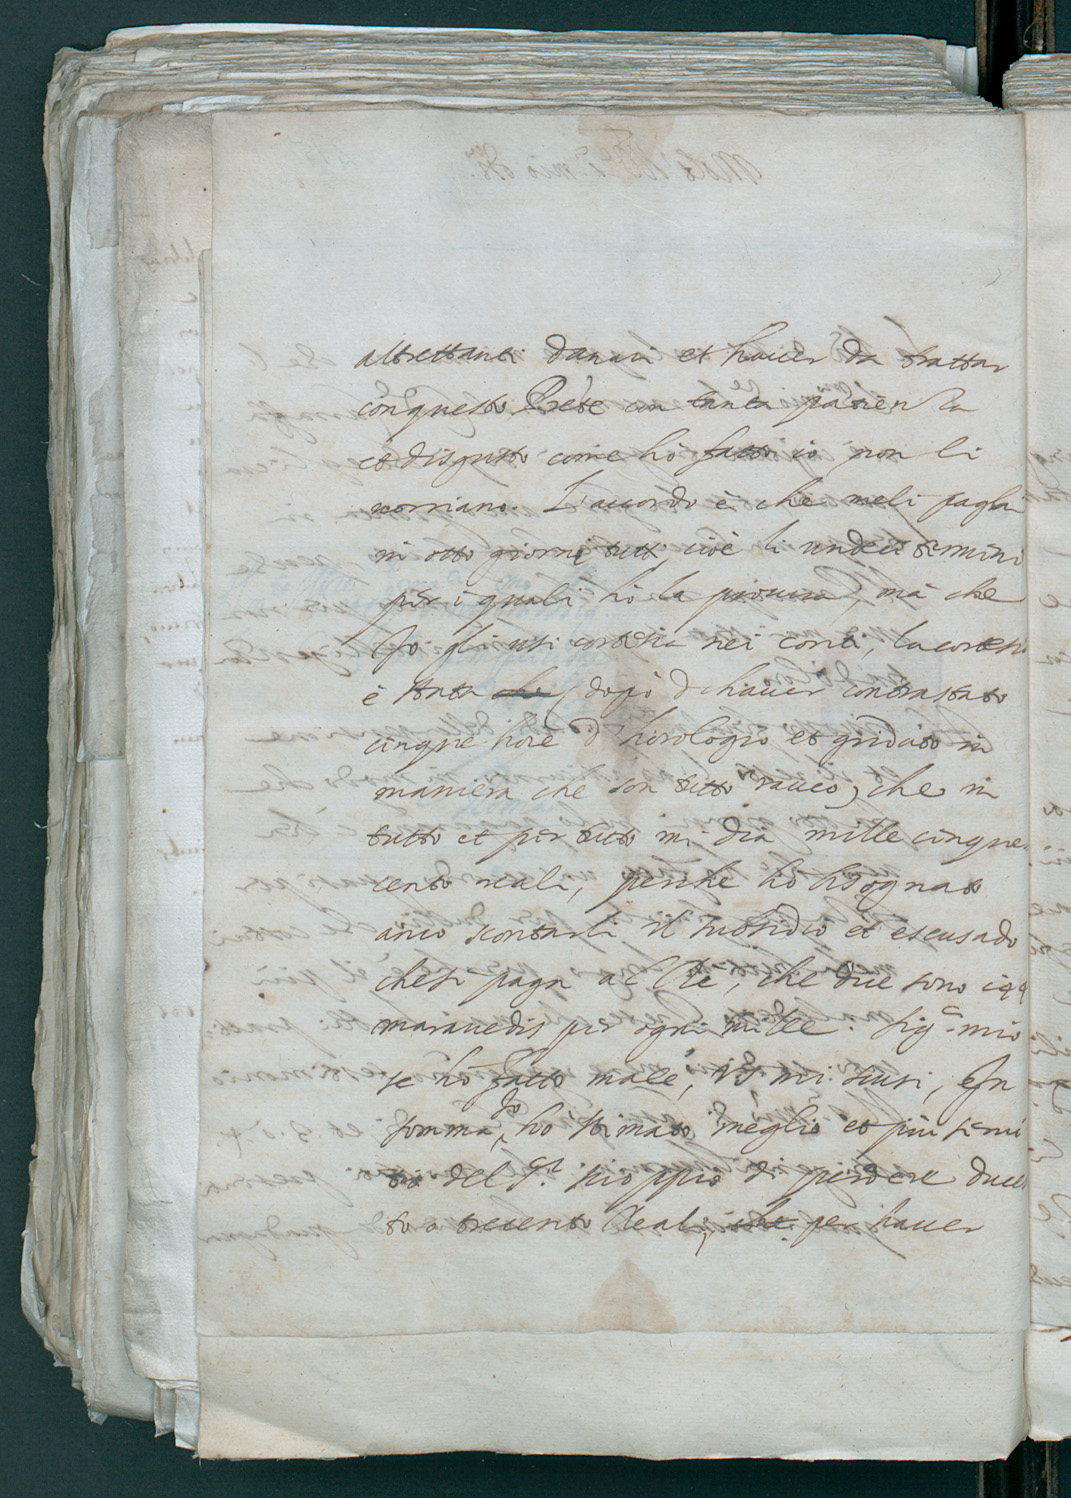 altrettanti danari et hauer da trattar
conquesto Prete con tanta patienza
et disgusto come hò fatto io non li
uorriano. L'accordo è che meli paghi
in otto giorni tutti, cioè li undeci termini
per i quali hò la procura, mà che
Io gli usi cortesia nei conti, la cortesia
è stata che, dopò d'hauer contrastato
cinque hore d'horologio et gridato in
maniera che son tutto rauco, che in
tutto et per tutto mi dia mille cinque
cento reali, perche hò bisognato
anco scontarli il subsidio et escusado
chesi paga al Re, che due sono 199
marauedis per ogni mille. Sig.r mio
se hò fatto male, VS. mi scusi, In
somma, Io hò stimato meglio et più serui
tio del S.r Scioppio di perdere ducen
to o trecento Reali, che per hauer